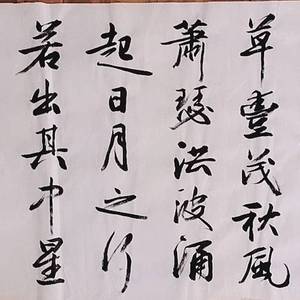 草豐茂秋風
蕭瑟洪波涌
起日月之行
若出其中星